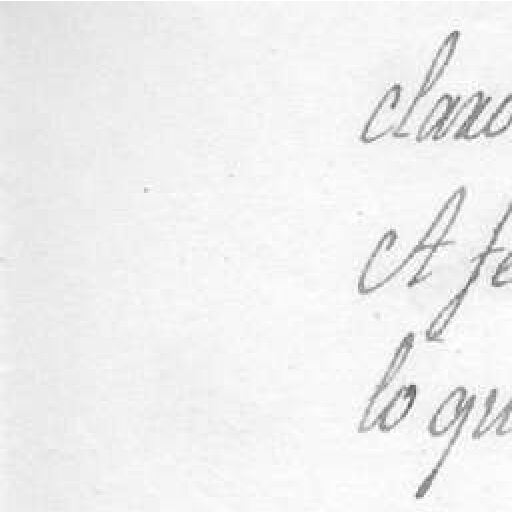 claro
A fe
lo qu